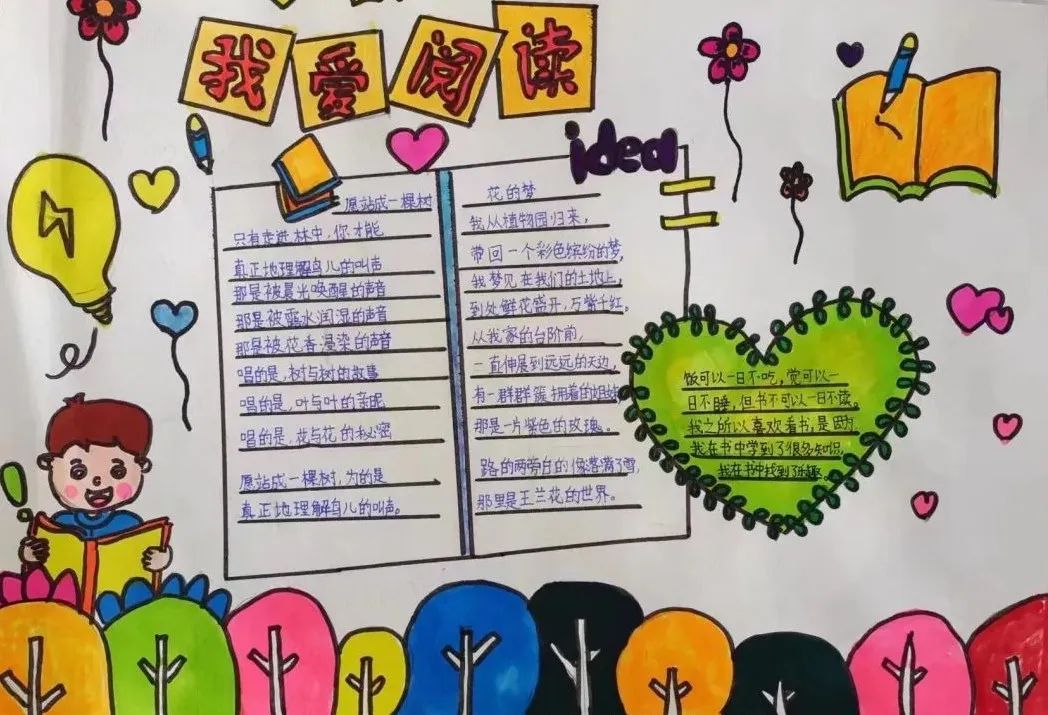 我爱阅读
idea
愿站成一棵树
只有走进林中，你才能
真正地理解鸟儿的叫声
那是被晨光唤醒的声音
那是被露水润湿的声音
那是被花香浸染的声音
唱的是，树与树的故事
唱的是，叶与叶的亲昵
唱的是，花与花的秘密
愿站成一棵树，为的是
真正地理解鸟儿的叫声。
花的梦
我从植物园归来，
带回一个彩色缤纷的梦，
我梦见在我们的土地上，
到处鲜花盛开，万紫千红。
从我家的台阶前，
一直伸展到远远的天边，
有一群群簇拥着的姐妹
那是一片紫色的玫瑰。
路的两旁白的像落满了雪，
那里是玉兰花的世界。
饭可以一日不吃，觉可以一
日不睡，但书不可以一日不读。
我之所以喜欢看书，是因为
我在书中学到了很多知识，
我在书中找到了乐趣。